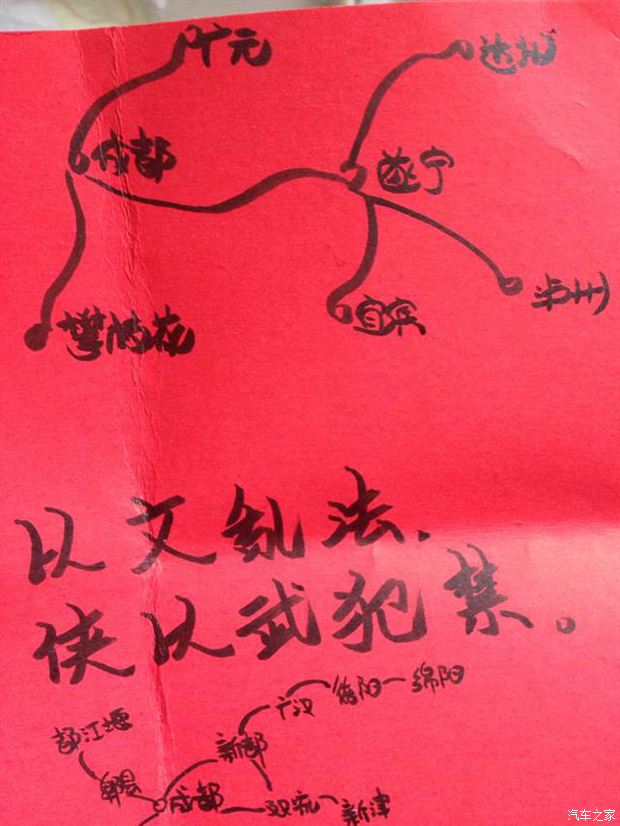 广元
达州
成都
遂宁
攀枝花
宜宾
以文乱法、
侠以武犯禁。
广汉一德阳一绵阳
都江堰
新都
郫县
成都
双流
新津
汽车之家